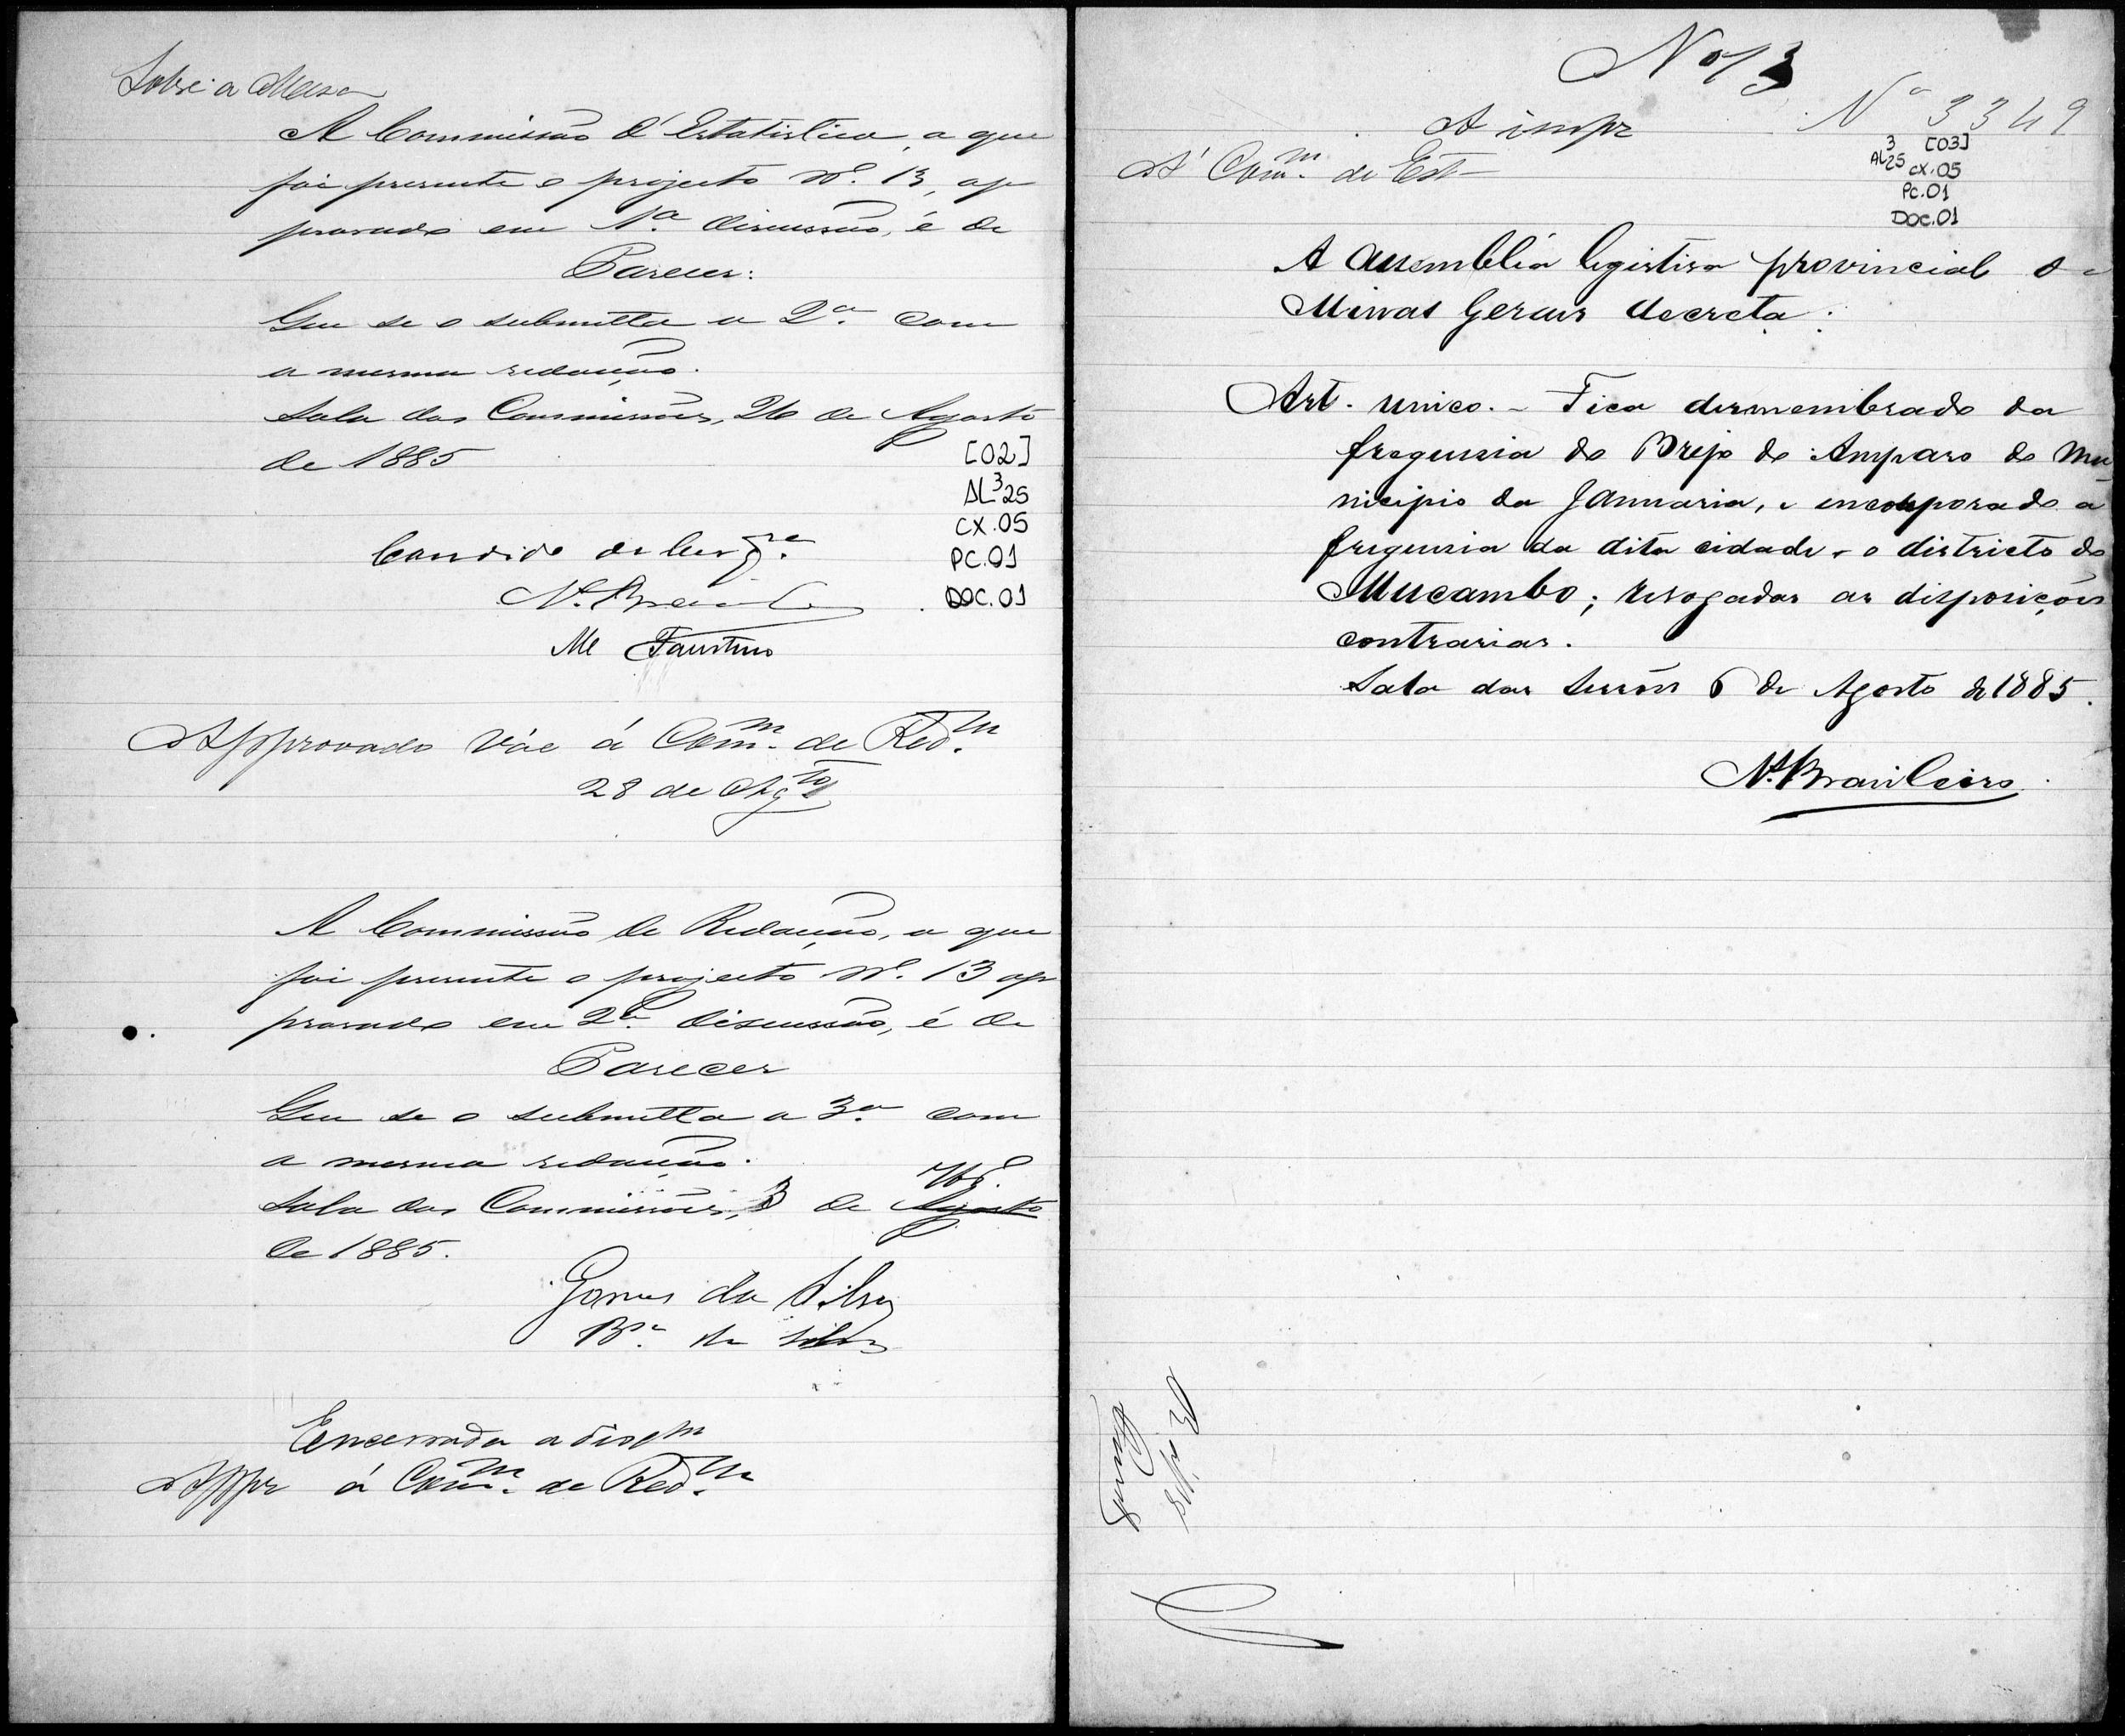 Sobre a Mesa
A Commissão d'Estatistica, a que
foi presente o projecto Nº. 13, ap
provado em 1ª. discussão, é de
Parecer:
Que se o submetta a 2ª. com
a mesma redacção.
Sala das Commissões, 26 de Agosto
de 1885
[02]
AL³25
CX.05
PC.01
DOC.01
Candido de
N. Brasileiro
Me Faustino
Approvado Vae á Comm. de Redm.
28 de Agto
A Commissão de Redacção, a que
foi presente o projecto Nº. 13 ap
provado em 2ª. discussão, é de
Parecer
Que se o submetta a 3ª. com
a mesma redacção.
Sala das Commissões, 3 de Agosto 7bº.
de 1885.
Gomes da Silva
Bª. da Silva
Encerrada a
Appr á Comm. de Redm.
Nº 13
A impr
Nº 3349
Á Comm. de Est
3 [03]
AL25 CX.05
PC.01
DOC.01
A Assembléa legistiva provincial de
Minas Geraes decreta:
Art. unico. - Fica desmembrado da
freguesia do Brejo do Amparo do Mu
nicipio da Januaria, e encorporado á
freguesia da dita cidade o districto do
Mucambo; revogadas as disposições
contrarias.
Sala das Sessões 6 de Agosto de 1885.
N. Brasileiro.